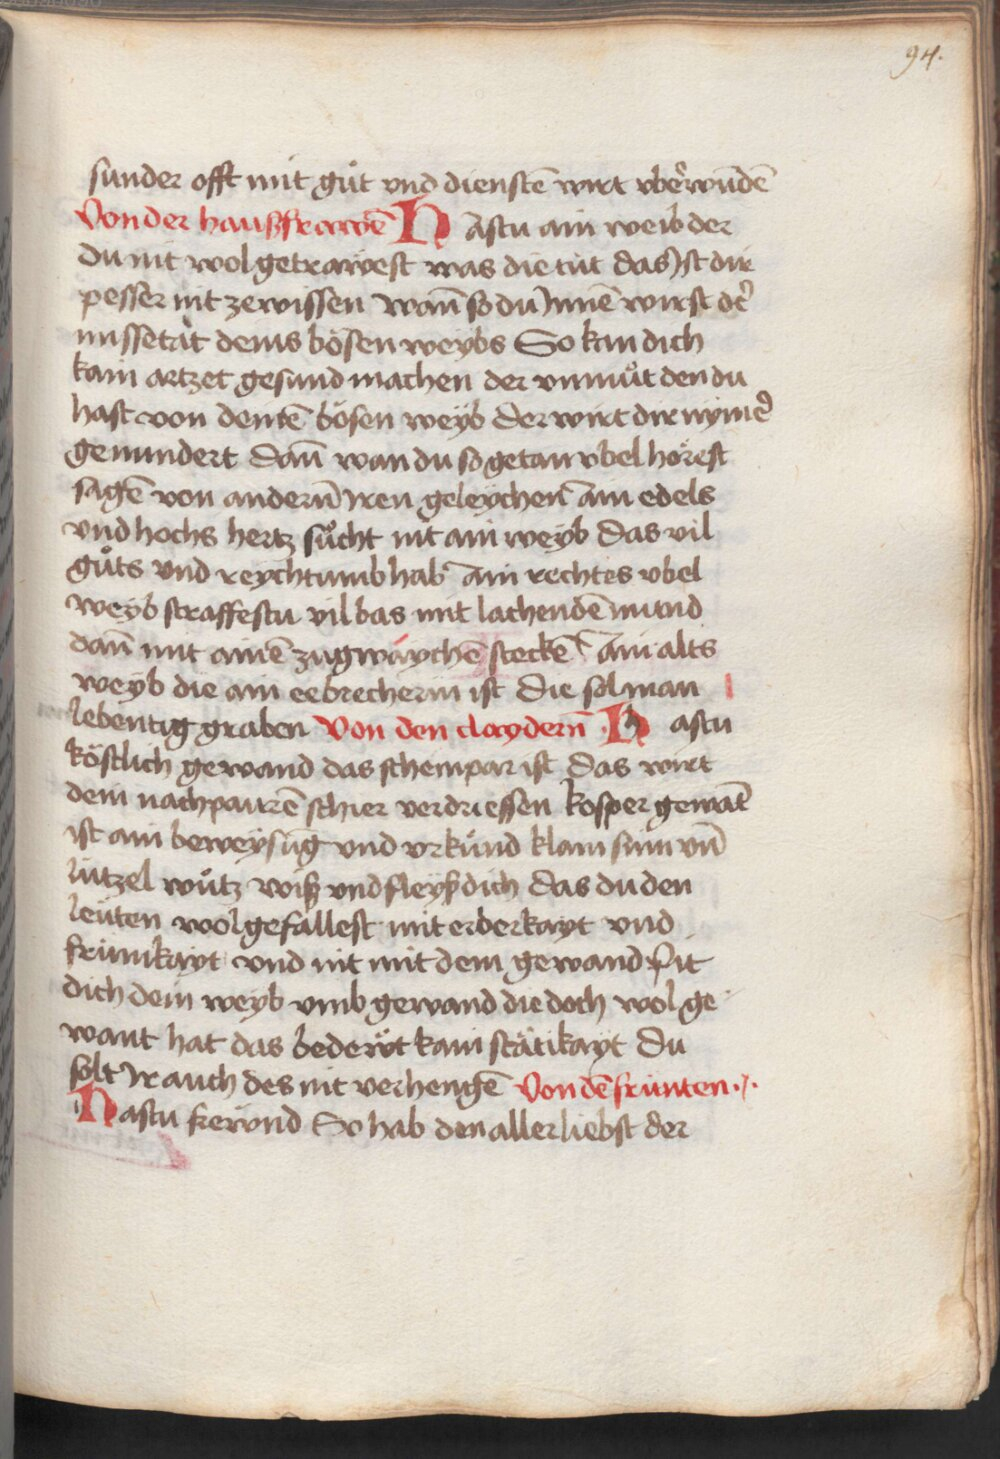 94.
sunder offt mit gůt vnd dienstē wirt vberwūdē
Von der haußfrawē Hastu ain weib der
du nit wol getrawest was die tůt das Jst dir
pesser nit zewissen wañ so du Jnnē wirst der
missetat deins bösen weybs So kan dich
kain artzet gesund machen der vnmůt den du
hast von deinē bösen weyb der wirt dir nymer
gemindert dañ wan du so getan vbel hörest
sagē von anderñ Jren geleychen Ain edels
vnd hochs hertz sůcht nit ain weyb das vil
gůts vnd reychtumb hab Ain rechtes vbel
weyb straffestu vil bas mit lachendē mund
dañ mit ainē steckē Ain alts
weyb die ain eebrecherin ist die sol man
lebentig graben Von den claydern̄ Hastu
köstlich gewand das scheinpar ist das wirt
dein nachpaurē schier verdriessen kosper gewāt
ist ain beweysūg vnd vrkünd klain sinn vñ
lützel wůtz wiß vnd fleyß dich das du den
leüten wol gefallest mit erberkayt vnd
frümkayt vnd nit mit dem gewand Pit
dich dein weyb vmb gewand die doch wol ge
want hat das bedeẅt kain stätikayt du
solt Jr auch des nit verhengē Von dē frünten
Hastu freẅnd So hab den allerliebst der